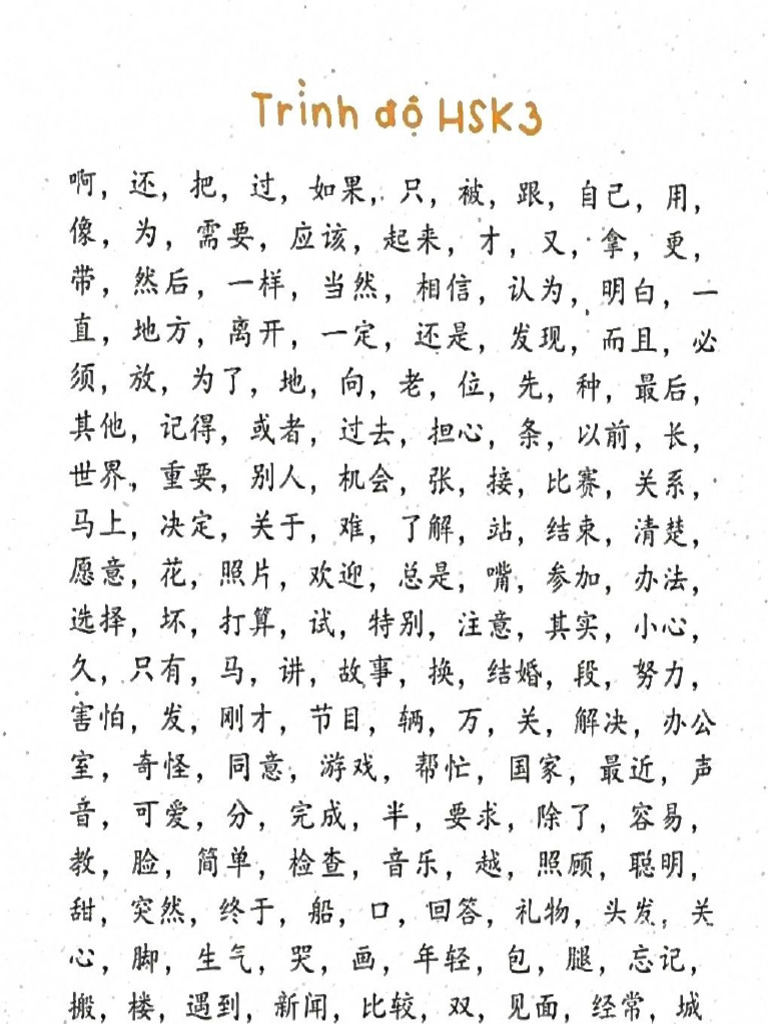 Trình độ HSK3
啊，还，把，过，如果，只，被，跟，自己，用，
像，为，需要，应该，起来，才，又，拿，更，
带，然后，一样，当然，相信，认为，明白，一
直，地方，离开，一定，还是，发现，而且，必
须，放，为了，地，向，老，位，先，种，最后，
其他，记得，或者，过去，担心，条，以前，长，
世界，重要，别人，机会，张，接，比赛，关系，
马上，决定，关于，难，了解，站，结束，清楚，
愿意，花，照片，欢迎，总是，嘴，参加，办法，
选择，坏，打算，试，特别，注意，其实，小心，
久，只有，马，讲，故事，换，结婚，段，努力，
害怕，发，刚才，节目，辆，万，关，解决，办公
室，奇怪，同意，游戏，帮忙，国家，最近，声
音，可爱，分，完成，半，要求，除了，容易，
教，脸，简单，检查，音乐，越，照顾，聪明，
甜，突然，终于，船，口，回答，礼物，头发，关
心，脚，生气，哭，画，年轻，包，腿，忘记，
搬，楼，遇到，新闻，比较，双，见面，经常，城